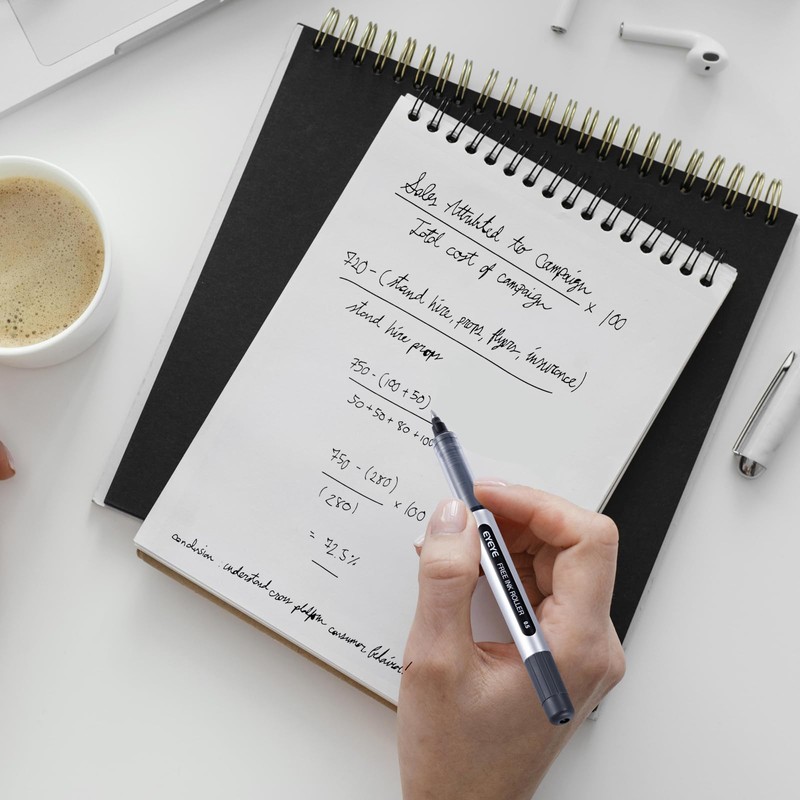 Sales Attributed to Campaign
Total cost of campaign × 100
720 - (stand hire, props, flyers, insurance)
stand hire props
750 - (100 + 50)
50 + 50 + 80 + 100
750 - (280)
(280) × 100
= 72.5%
conclusion: understand cross platform consumer behavior!
EYEYE FREE INK ROLLER 0.5